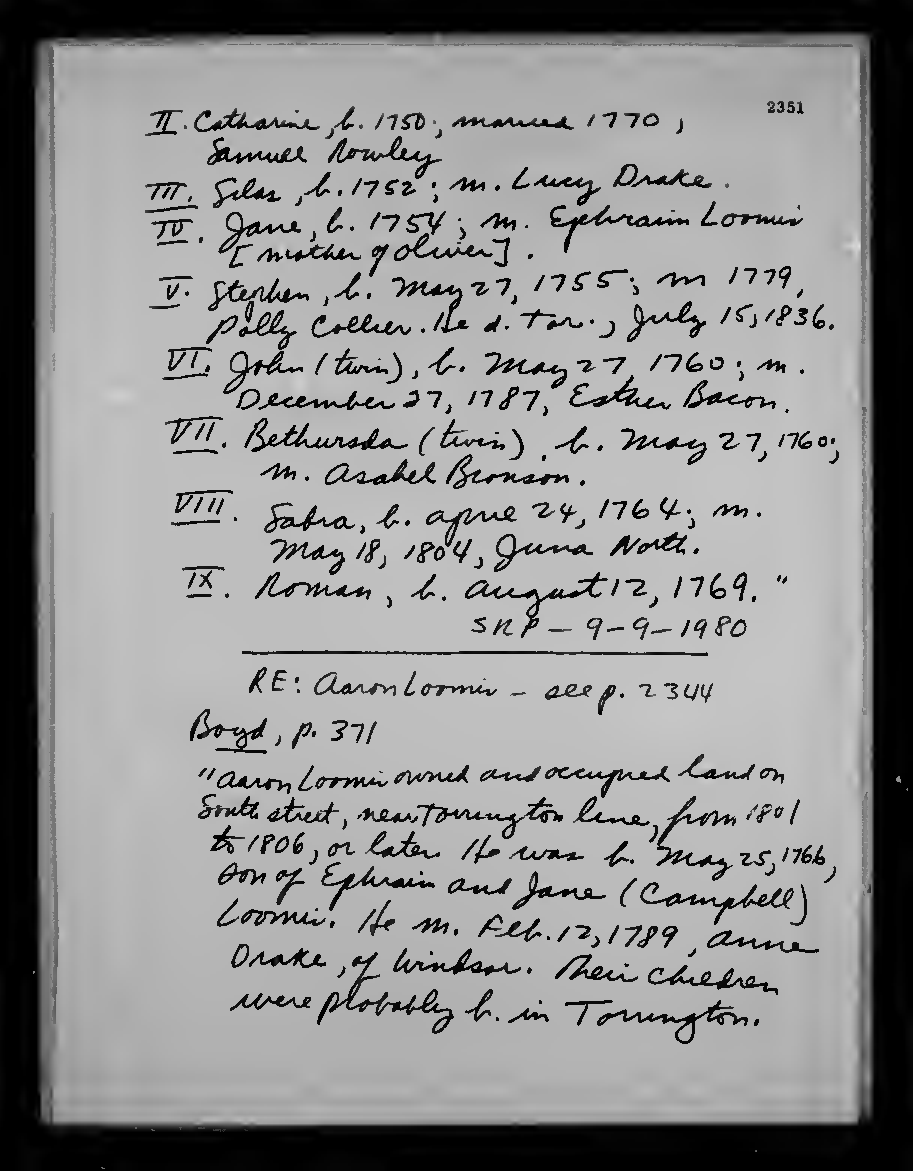 2351
II. Catharine, b. 1750; married 1770,
Samuel Rowley
III. Silas, b. 1752; m. Lucy Drake.
IV. Jane, b. 1754; m. Ephraim Loomis
[mother of Oliver].
V. Stephen, b. May 27, 1755; m 1779,
Polly Collier. He d. Tor., July 15, 1836.
VI. John (twin), b. May 27, 1760; m.
December 27, 1787, Esther Bacon.
VII. Bethursda (twin), b. May 27, 1760;
m. Asahel Bronson.
VIII. Sabra, b. April 24, 1764; m.
May 18, 1804, Juna North.
IX. Roman, b. August 12, 1769."
SRP - 9-9-1980
RE: Aaron Loomis - see p. 2344
Boyd, p. 371
"Aaron Loomis owned and occupied land on
South street, near Torrington line, from 1801
to 1806, or later. He was b. May 25, 1766,
son of Ephraim and Jane (Campbell)
Loomis. He m. Feb. 12, 1789, Anne
Drake, of Windsor. Their children
were probably b. in Torrington.